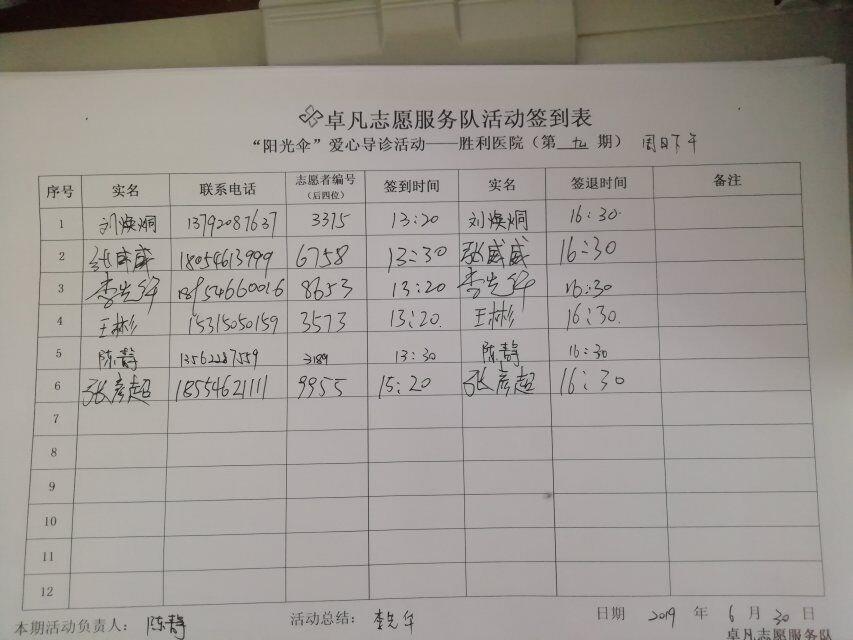 卓凡志愿服务队活动签到表
“阳光伞”爱心导诊活动——胜利医院（第 九 期） 周日下午
序号 实名 联系电话 志愿者编号（后四位） 签到时间 实名 签退时间 备注
1 刘焕炯 13792087637 3375 13:20 刘焕炯 16:30
2 张威威 18054613999 6758 13:30 张威威 16:30
3 李先华 18954660016 8653 13:20 李先华 16:30
4 王彬 15315050159 3573 13:20 王彬 16:30
5 陈静 13562287559 3189 13:30 陈静 16:30
6 张彦超 18554621111 9955 15:20 张彦超 16:30
7
8
9
10
11
12
本期活动负责人： 陈静 活动总结： 李先华 日期 2019 年 6 月 30 日
卓凡志愿服务队